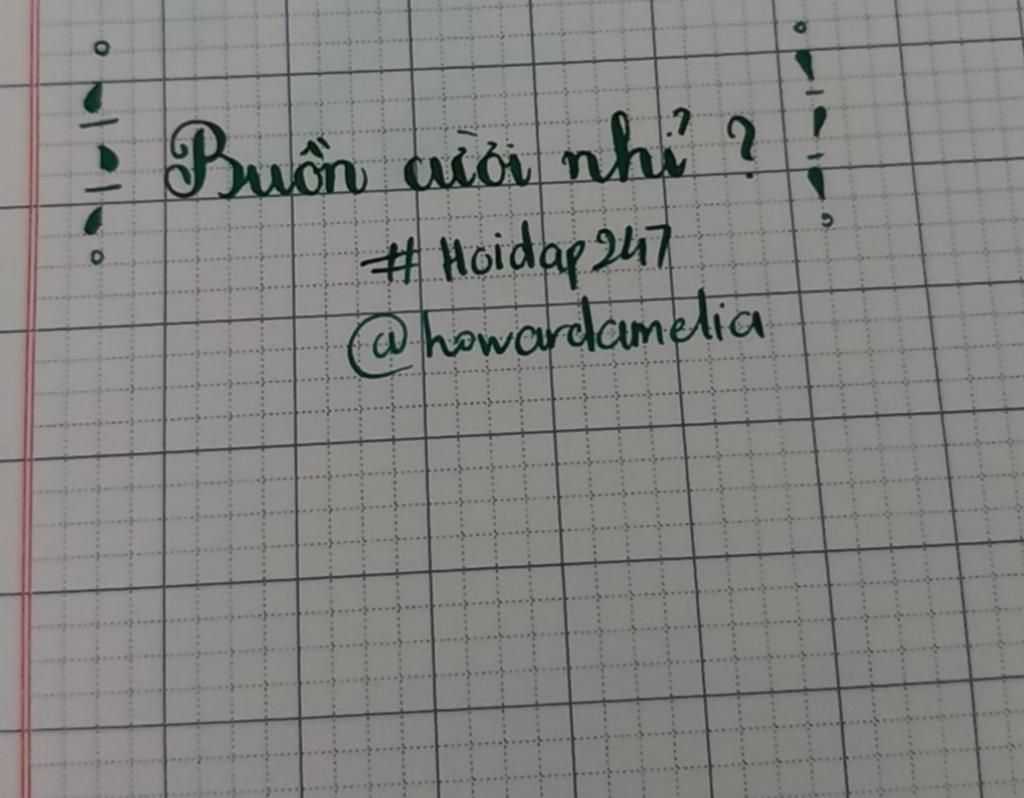 Buồn cười nhỉ ?
# Hoidap247
@howardamelia